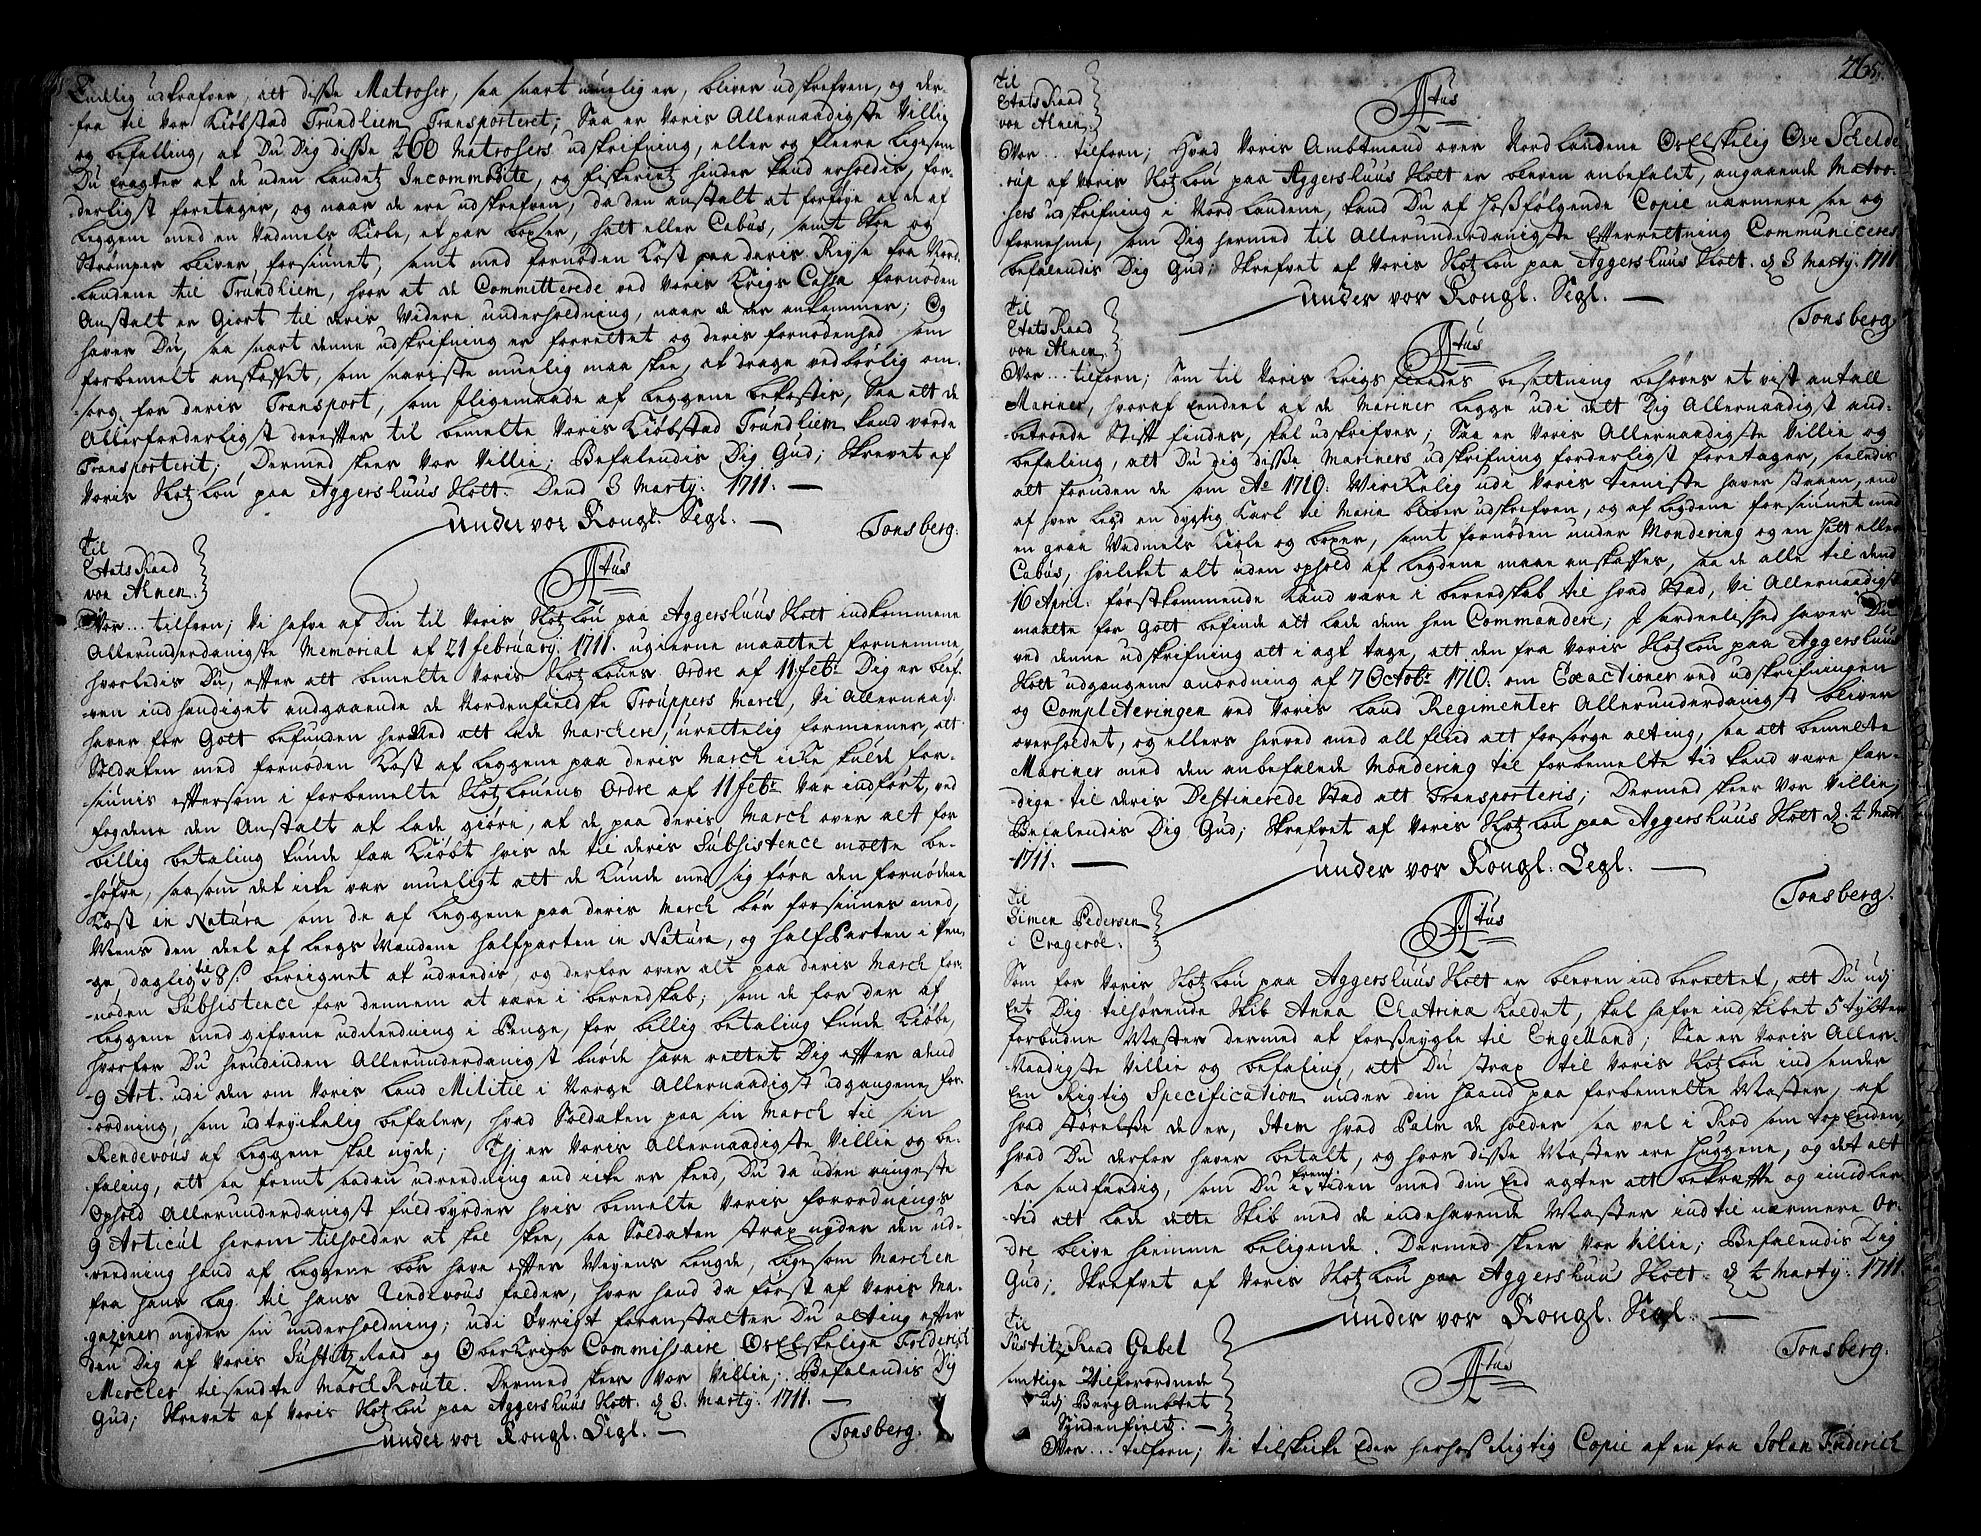 Endlig udkræfver, att disse Matroser, saa snart muelig er, bliver udskrefven, og der-
fra til Vor Kiøbstad Trundhiem Transporteret; Saa er Voris Allernaadigste Villie
og befalling, at Du Dig disse 260 Matrosers udskrifning, eller og fleere ligesom
Du eragter at de uden landetz Incommodite, og fiskeriet hinder kand erholdes, for-
derligst foretager, og naar de ere udskrefven, da den anstalt at forføye at de af
leggene med en Vadmels Kiole, et par boxser, hatt eller Cabus, samt Skoe og
Strømper bliver forsiunet, samt med fornøden Kost paa deris Reyse fra Nord-
landene til Trundhiem, hvor at de Committerede ved Voris Krigs Cassa fornøden
Anstalt er Giort til deris Videre underholdning, naar de der ankommer; Og
haver Du, saa snart denne udskrifning er forrettet og deris fornødenhed som
forbemelt anskaffet, som snariste muelig maa skee, at drage vedbørlig om-
sorg for deris Transport, som sligemaade af leggene bekostis, Saa att de
Allerforderligst derefter til bemelte Voris Kiøbstad Trundhiem kand vorde
Transporterit; Dermed skeer Vor Villie; Befalendis Dig Gud; Skrevet af
Voris Slotzlou paa Aggershuus Slott. Dend 3 Marty: 1711.
under vor Kongl. Segl.
Tonsberg.
Til
Etats Raad
von Ahnen.
Atus
Vor... tilforn; Vi hafve af Din til Voris Slotzlou paa Aggershuus Slott indkommene
Allerunderdanigste Memorial af 21 february 1711. ugierne maattet fornemme,
hvorledis Du, efter att bemelte Voris Slotzloues ordre af 11 feb: Dig er blef-
ven indhændiget andgaaende de Nordenfieldske Trouppers March, Vi Allernaad:
haver for Gott befunden herved att lade Marchere, urettelig formeener, att
Soldaten med fornøden Kost af leggene paa deris March icke skulde for-
siunis eftersom i forbemelte Slotzlouens Ordre af 11 feb: Var indført, ved
fogdene den Anstalt at lade giøre, at de paa deris March over alt for
billig betaling kunde faa Kiøbt hvis de til deris Subsistence motte be-
høfve, saasom det icke var mueligt att de kunde med sig føre den fornødene
Kost in Natura som de af leggene paa deris March bør forsiunes med,
Mens den deel af leegs Mandene halfparten in Natura, og halfParten i Pen-
ge daglig til 8 s. beregnet at udreedis, og derfor over alt paa deris March for-
nøden Subsistence for dennem at være i bereedskab; som de for der af
leggene med gifvene udreedning i Penge, for billig betaling kunde Kiøbe,
hvorfor Du herudinden Allerunderdanigst burde have rettet Dig efter dend
9 Art. udi den om Voris Land Militie i Norge Allernaadigst udgangene for-
ordning, som udtryckelig befaler, hvad Soldaten paa sin March til sin
Rendevous af leggene skal nyde; Thj er Voris Allernaadigste Villie og be-
faling, att saa fremt saadan udreedning end icke er skeed, Du da uden ringeste
Ophold Allerunderdanigst fuldbyrder hvis bemelte Voris forordnings
9 Articul herom tilholder at skal skee, saa Soldaten strax nyder den ud-
reedning hand af leggene bør have efter Veyens lengde, ligesom Marchen
fra hans læg til hans Rendevous falder, hvor hand da først af Voris Ma-
gaziner nyder sin underholdning; udi Øvrigt foranstalter Du alting efter
den Dig af Voris Justitz Raad og OberKrigs Commissaire OsElskelige Friderich
Mercker tilsendte MarchRoute. Dermed skeer Vor Villie; Befalendis Dig
Gud; Skrevet af Voris Slotzlou paa Aggershuus Slott. d 3. Marty: 1711.
under vor Kongl. Segl.
Tonsberg.
265.
Til
Etats Raad
von Ahnen.
Atus
Vor... tilforn; Hvad Voris Ambtmand over Nordlandene OsElskelig Ove Schelde
rup af Voris Slotzlou paa Aggershuus Slott er bleven anbefalet, angaaende Matro-
sers udskrifning i Nordlandene, kand Du af hosfølgende Copie nærmere see og
fornehme, som Dig hermed til Allerunderdanigste Efterretning Communiceres
befalendis Dig Gud; Skrefvet af Voris Slotzlou paa Aggershuus Slott. d 3 Marty: 1711
under vor Kongl. Segl.
Tonsberg
Til
Etats Raad
von Ahnen.
Atus
Vor... tilforn; Som til Voris Krigs flaades besettning behøves et vist antall
Mariner, hvoraf Eendeel af de Mariner legge udi dett Dig Allernaadigst and-
betroede Stift findes, skal udskrifves; Saa er Voris Allernaadigste Villie og
befaling, att Du Dig disse Mariners udskrifning forderligst foretager, saaledis
att foruden de som Ao 1710. Wirckelig udi Voris tieniste haver staaen, end
af hver legd en dygtig Karl til Marin bliver udskrefven, og af legdene forsiunet med
en graa Vadmels Kiole og boxer, samt fornøden under Mondering og en Hatt eller
Cabus, hvilcket alt uden ophold af legdene maae anskaffes, saa de alle til dend
16 April: førstkommende kand være i bereedskab til hvad Stad, Vi Allernaadigst
maatte for Gott befinde att lade dem hen Commandere; I særdeelished haver Du
ved denne udskrifning att i agt tage, att den fra Voris Slotzlou paa Aggershuus
Slott udgangene anordning af 7 Octob: 1710. om Exactioner ved udskrifningen
og Completeringen ved Voris Land Regimenter Allerunderdanigst bliver
overholdet, og ellers herved med all fliid att forsørge alting, saa att bemelte
Mariner med den anbefalede Mondering til forbemelte tid kand være fær-
dige til deris Destinerede Stad att Transporteris; Dermed skeer Vor Villie,
Befalendis Dig Gud; Skrefvet af Voris Slotzlou paa Aggershuus Slott d. 4 Mart
1711.
under vor Kongl. Segl.
Tonsberg.
Til
Simen Pedersen
i Crageröe.
Atus
Som for Voris Slotzlou paa Aggershuus Slott er bleven indberettet, att Du udj
Eet Dig tilhørende Skib Anna Chatrina kaldet, skal hafve indskibet 5 tylter
forbudne Master dermed at forseygle til Engelland; Saa er Voris Aller-
Naadigste Villie og befaling, att Du strax til Voris Slotzlou indsender
Een Rigtig Specification under din haand paa forbemelte Master, af
hvad størelse de er, Item hvad Palm de holder saa vel i Rod som top Enden,
hvad Du derfor haver betalt, og hvor disse Master ere huggene, og det alt
saa sandferdig, som Du i fremtiden med din Eed agter att bekræfte og imidler
tid att lade dette Skib med de indehavende Master indtil nærmere Or-
dre blive hiemme beliggende. Dermed skeer Vor Villie; Befalendis Dig
Gud; Skrefvet af Voris Slotzlou paa Aggershuus Slott. d 4 Marty: 1711.
under vor Kongl. Segl.
Tonsberg.
Til
Justitz Raad Gabel
samtlige Tilforordnede
udj BergAmbtet
Syndenfieltz.
Atus
Vor... tilforn; Vi tilskicke Eder herhos Rigtig Copie af en fra Johan Friderich